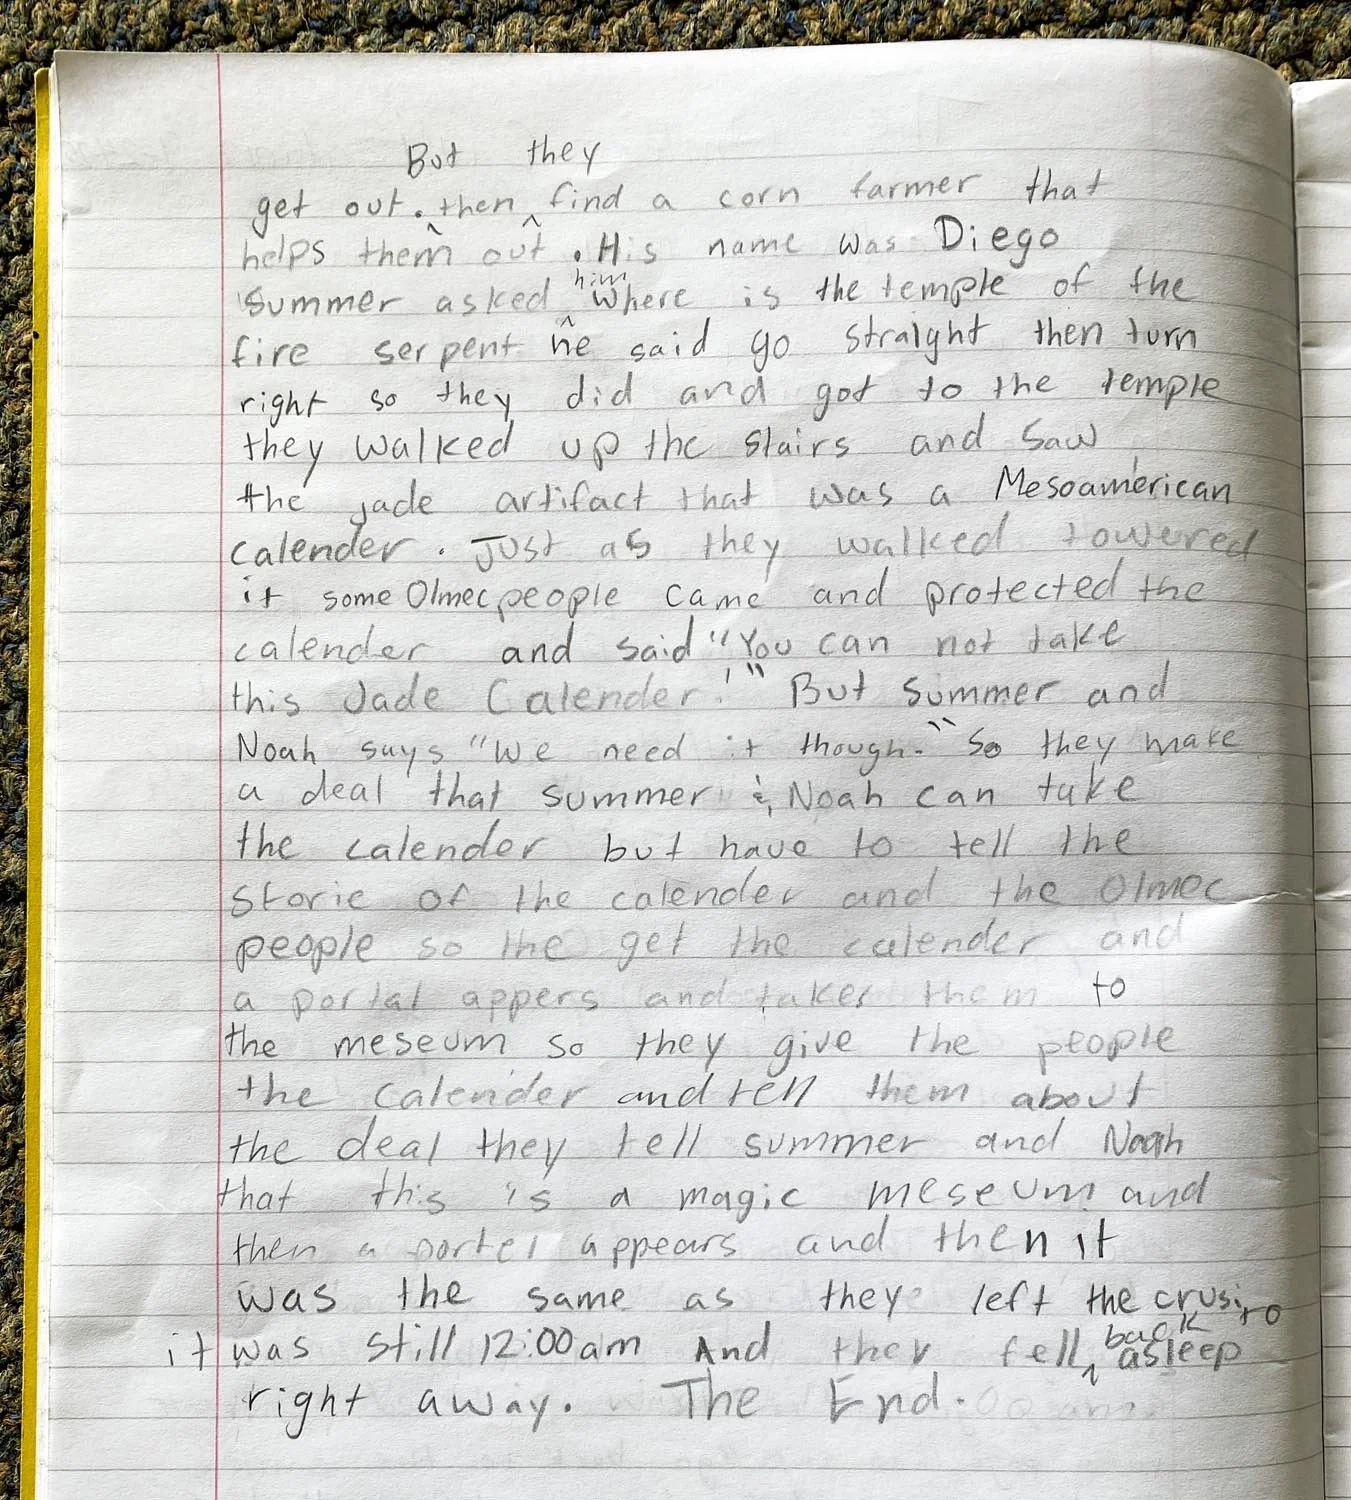 But they
get out. then ^ find a corn farmer that
helps them ^ out. His name was Diego
him
Summer asked ^ Where is the temple of the
fire serpent he said go straight then turn
right so they did and got to the temple
they walked up the stairs and saw
the jade artifact that was a Mesoamerican
calender. Just as they walked towered
it some Olmec people came and protected the
calender and said "You can not take
this Jade Calender!" But Summer and
Noah says "We need it though." So they make
a deal that summer & Noah can take
the calender but have to tell the
storie of the calender and the Olmec
people so the get the calender and
a portal appers and takes them to
the meseum so they give the people
the calender and tell them about
the deal they tell summer and Noah
that this is a magic meseum and
then a portel appears and then it
was the same as they left the
it was still 12:00am And they fell ^ back asleep
right away. The End.